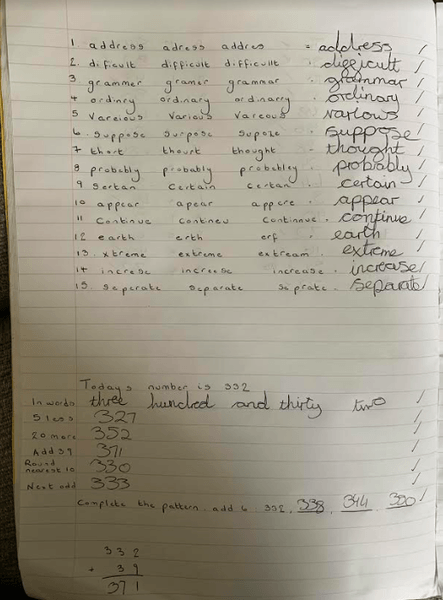 1 address adress addres = address /
2. dificult difficult difficullt . difficult /
3 grammer gramer grammar . grammar /
4 ordinry ordinary ordinarry . ordinary /
5 Vareious Various Vareous . various /
6. Suppose Surpose Supoze . suppose /
7 thort thourt thought . thought /
8 probebly probably probabley . probably /
9 Sertan Certain Certan . certain /
10 appear apear appere . appear /
11 Continue Contineu Continnue . continue /
12 earth erth erf . earth /
13. xtreme extreme extream . extreme /
14 increse increese increase . increase /
15. Seperate Separate Siprate . separate /
Todays number is 332
In words three hundred and thirty two /
5 less 327 /
20 more 352 /
Add 39 371 /
Round nearest 10 330 /
Next odd 333 /
Complete the pattern. add 6 332, 338, 344, 350 /
332
+ 39
371